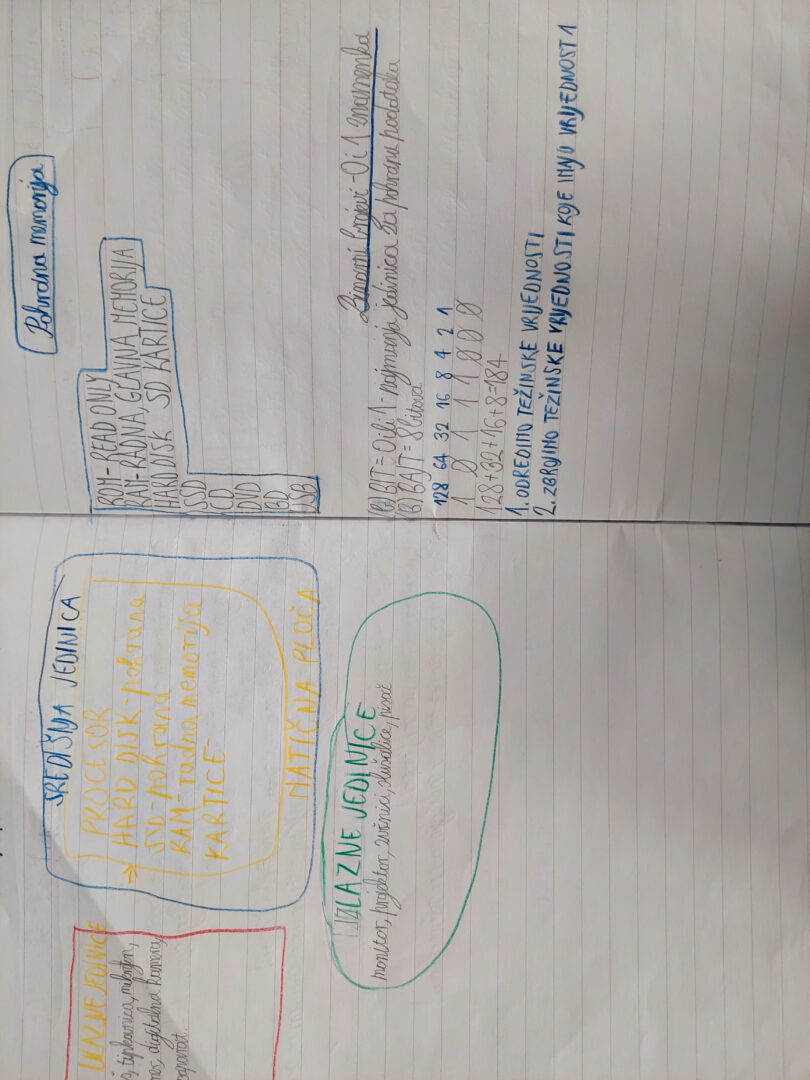 ULAZNE JEDINICE
tipkovnica, mikrofon,
digitalna kamera,
SREDIŠNJA JEDINICA
PROCESOR
→ HARD DISK - pohrana
SSD - pohrana
RAM - radna memorija
KARTICE -
MATIČNA PLOČA
IZLAZNE JEDINICE
monitor, projektor, zvučnici, slušalice, pisač
Pohrana memorija
ROM - READ ONLY
RAM - RADNA, GLAVNA MEMORIJA
HARD DISK SD KARTICE
SSD
CD
DVD
BD
USB
Binarni brojevi - 0 i 1 znamenka
(b) BIT = 0 ili 1 - najmanja jedinica za pohranu podataka
(B) BAJT = 8 bitova
128 64 32 16 8 4 2 1
1 0 1 1 1 0 0 0
128+32+16+8=184
1. ODREDIMO TEŽINSKE VRIJEDNOSTI
2. ZBROJIMO TEŽINSKE VRIJEDNOSTI KOJE IMAJU VRIJEDNOST 1